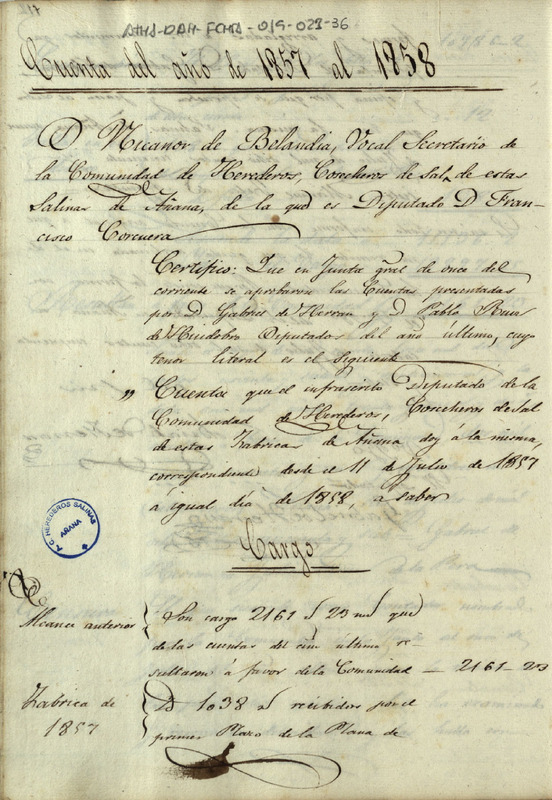 17
ATHA-DAH-FCHA-019-028-36
Cuenta del año de 1857 al 1858
D Nicanor de Belandia, Vocal Secretario de
la Comunidad de Herederos, Cosecheros de Sal, de estas
Salinas de Añana, de la que es Diputado D Fran-
cisco Corcuera
Certifico: Que en Junta gral de once del
corriente se aprobaron las Cuentas presentadas
por D Gabriel de Herran y D Pablo Ruiz
de Huidobro Diputados del año último, cuyo
tenor literal es el siguiente
„ Cuenta que el infrascrito Diputado de la
Comunidad de Herederos, Cosecheros de Sal
de estas Fabricas de Añana doy á la misma,
correspondiente desde el 11 de Julio de 1857
á igual dia de 1858, a saber
T. C. HEREDEROS SALINAS
AÑANA
Cargo
Alcance anterior
Son cargo 2161 23 que
de las cuentas del último re-
sultaron á favor de la Comunidad — 2161-23
Fabrica de
1857
1038 recibidos por el
primer Plazo de la Plana de